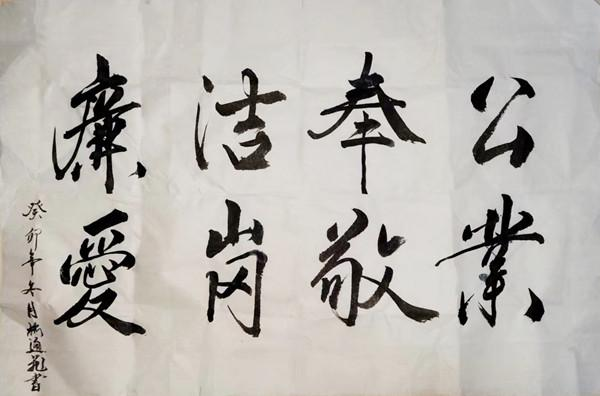 廉洁奉公
愛岗敬業
癸卯年冬月通書